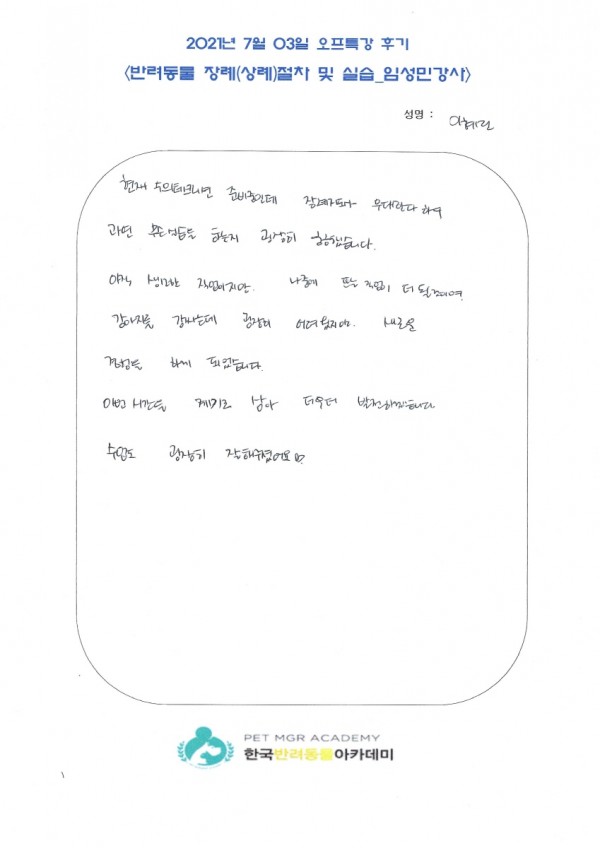 2021년 7월 03일 오프특강 후기
<반려동물 장례(상례)절차 및 실습_임성민강사>
성명 : 이혜린
현재 수의테크니션 준비중인데 장례지도사 우대한다 하여
과연 무슨 업무를 하는지 굉장히 궁금했습니다.
아직 생소한 직업이지만. 나중에 뜨는 직업이 더 될것이며.
강아지를 감싸는데 굉장히 어려웠지만. 새로운
경험을 하게 되었습니다.
이번 시간을 계기로 삼아 더욱더 발전하겠습니다.
수업도 굉장히 잘해주셨어요
PET MGR ACADEMY
한국반려동물아카데미